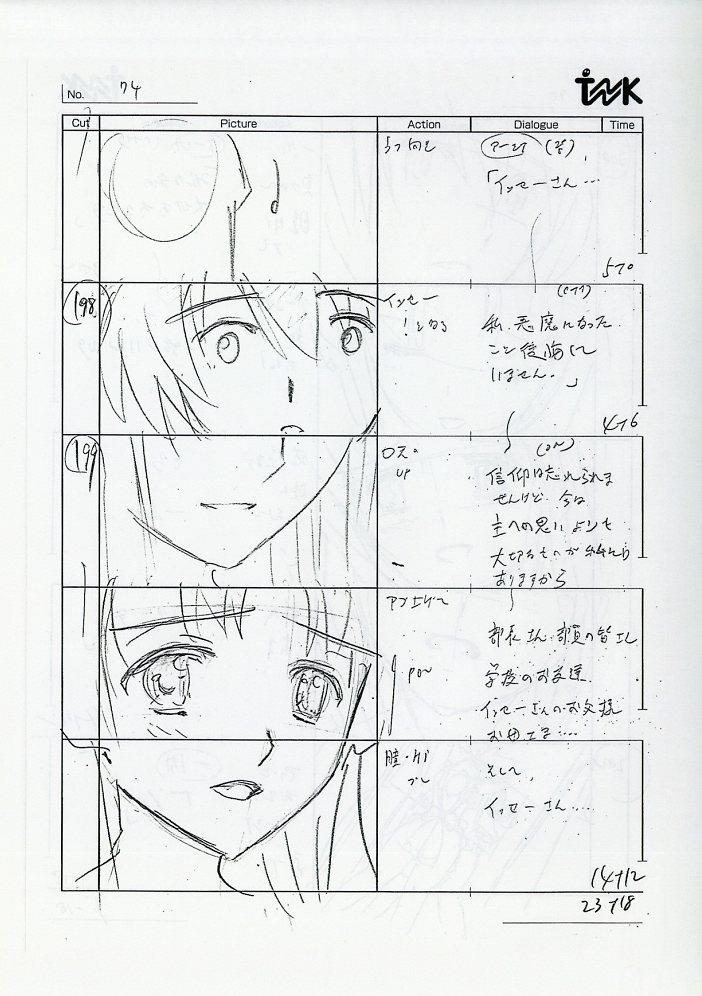 No. 74
TNK
Cut Picture Action Dialogue Time
アーシア
「イッセーさん…
5+0
198
イッセー
!となる
私、悪魔になった
こと後悔して
いません。」
4+6
199
口元
UP
(ON)
信仰は忘れられま
せんけど 今は
主への思いよりも
大切なものが
ありますから
部長さん、部員の皆さん
学校のお友達
イッセーさんのお父様
お母さま….
瞳・
ブレ
そして、
イッセーさん….
14+12
23+18